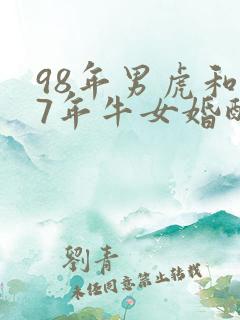 98年男虎和
7年牛女婚配
劉青
未经同意禁止转载